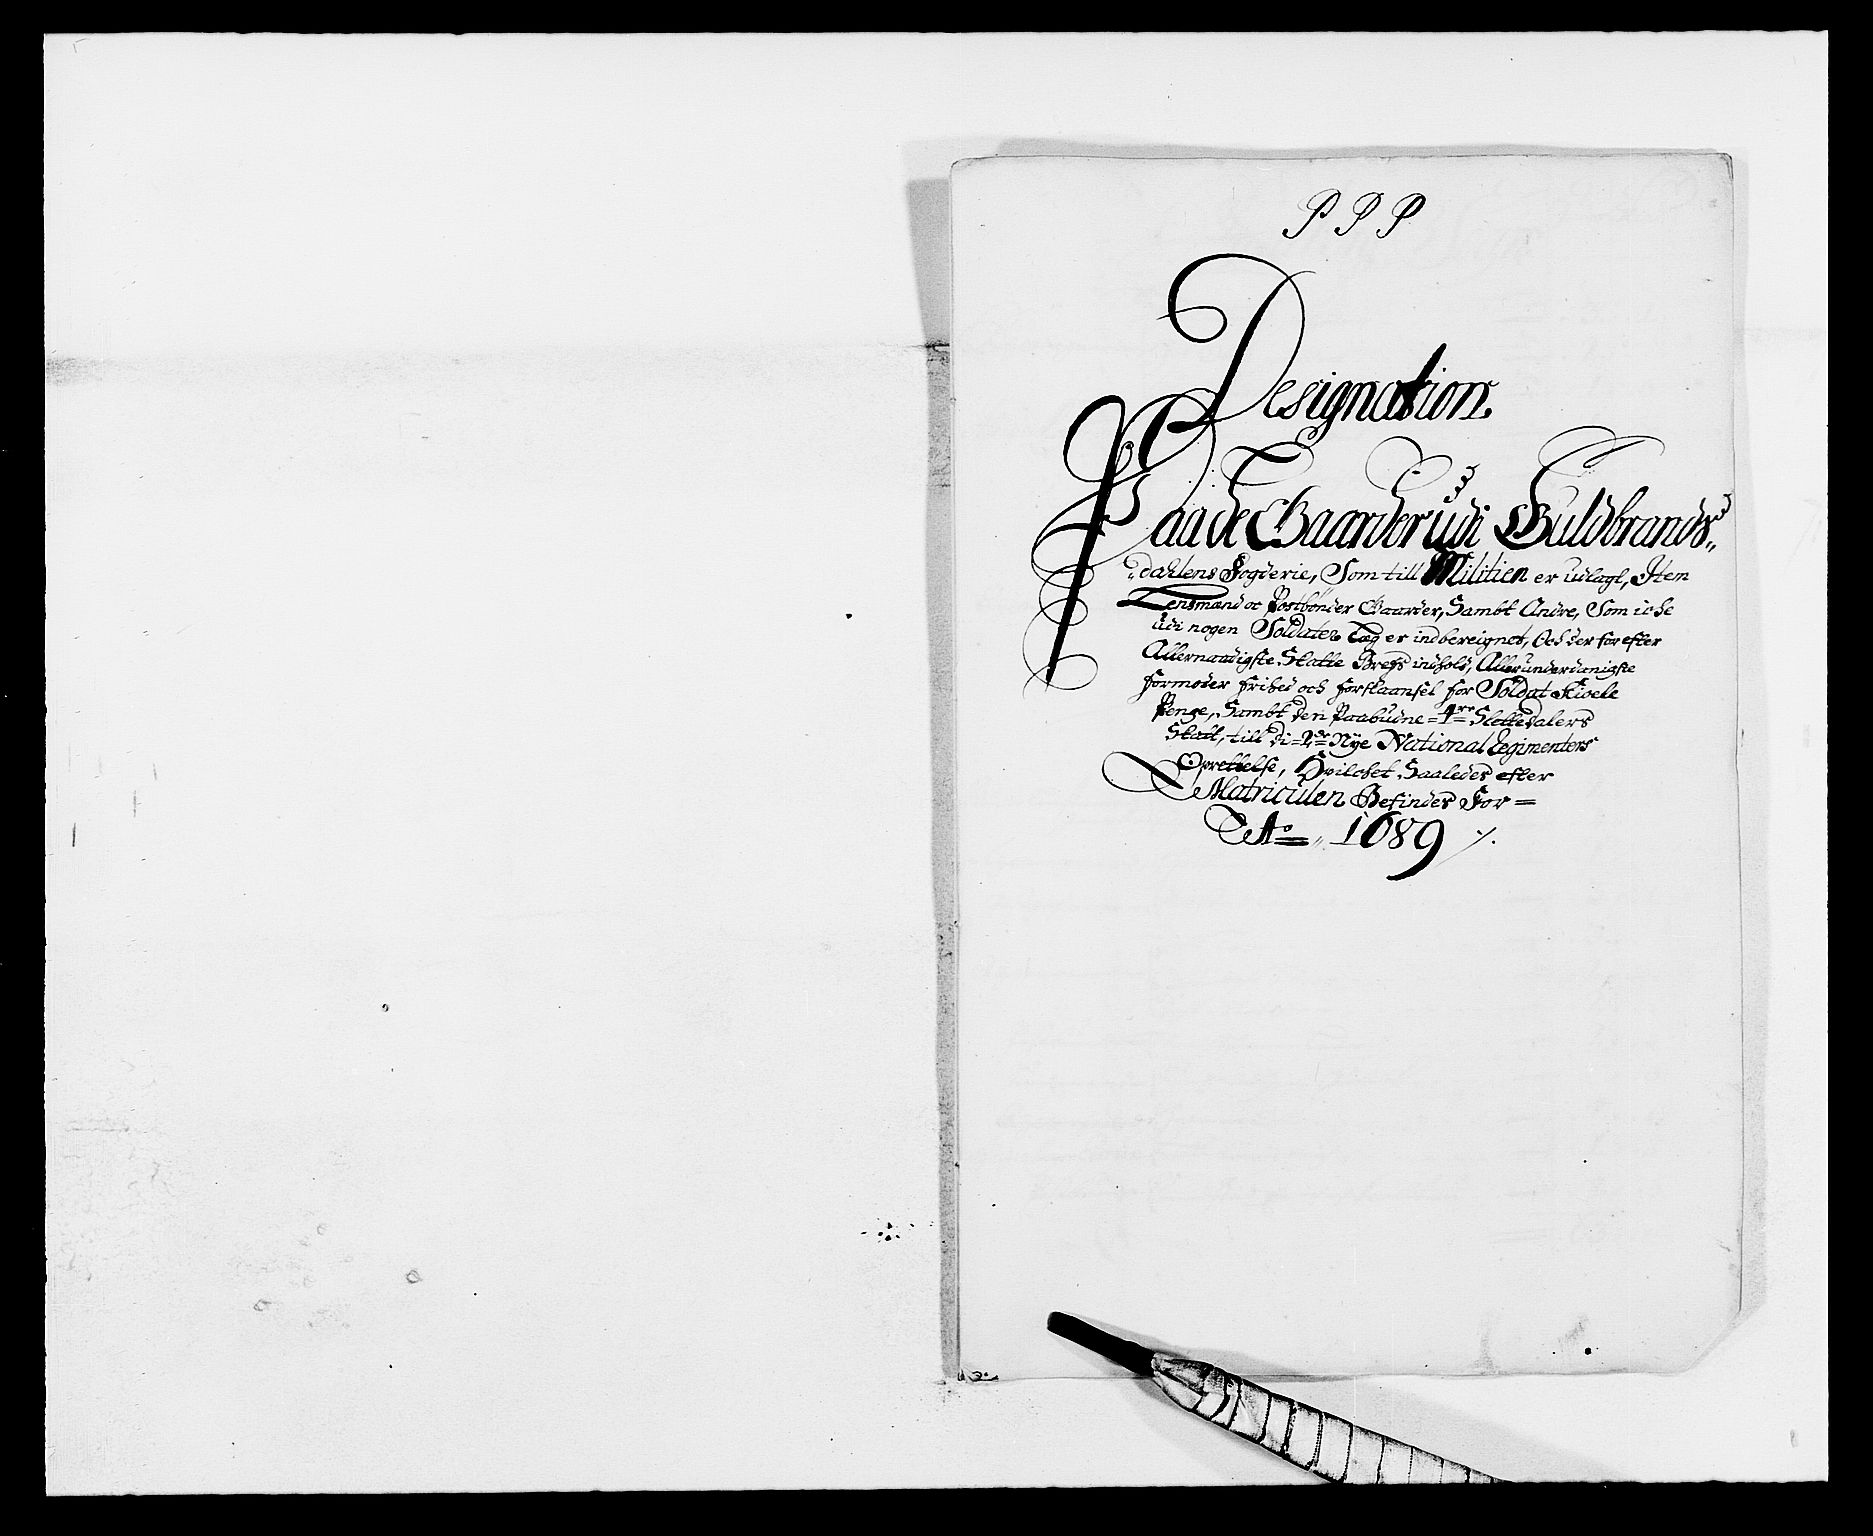 P P P
Designation
Paa de Gaarder udi Guldbrands„
„dahlens Fogderie, Som till Militien er udlagt, Item
Lensmænd oc Postbønder Gaarder, Sambt Andre, Som iche
udi nogen Soldater Læg er indbereignet, Och der for efter
Allernaadigste Skatte Brefs indhold, Allerunderdanigste
formoder frihed och forskaansel for Soldat Kiole
Penge, Sambt den Paabudne =1= Slettedalers
Skatt, till di =2de= Nye National Regimenters
Oprettelse, Hvilchet Saaledes efter
Matriculen Befindes For =
Ao „ 1689 ⁒.